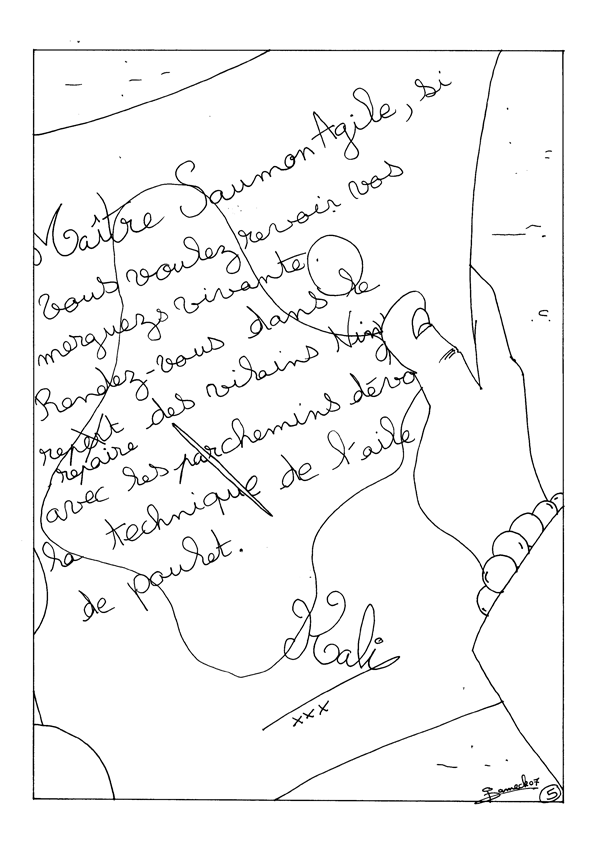 Maître Saumon Agile, si
vous voulez revoir vos
merguezs vivante.
Rendez-vous dans le
repert des vilains Ninj
repaire
avec les parchemins dévo
la technique de l'aile
de poulet.
Kali
xxx
Samech07
5